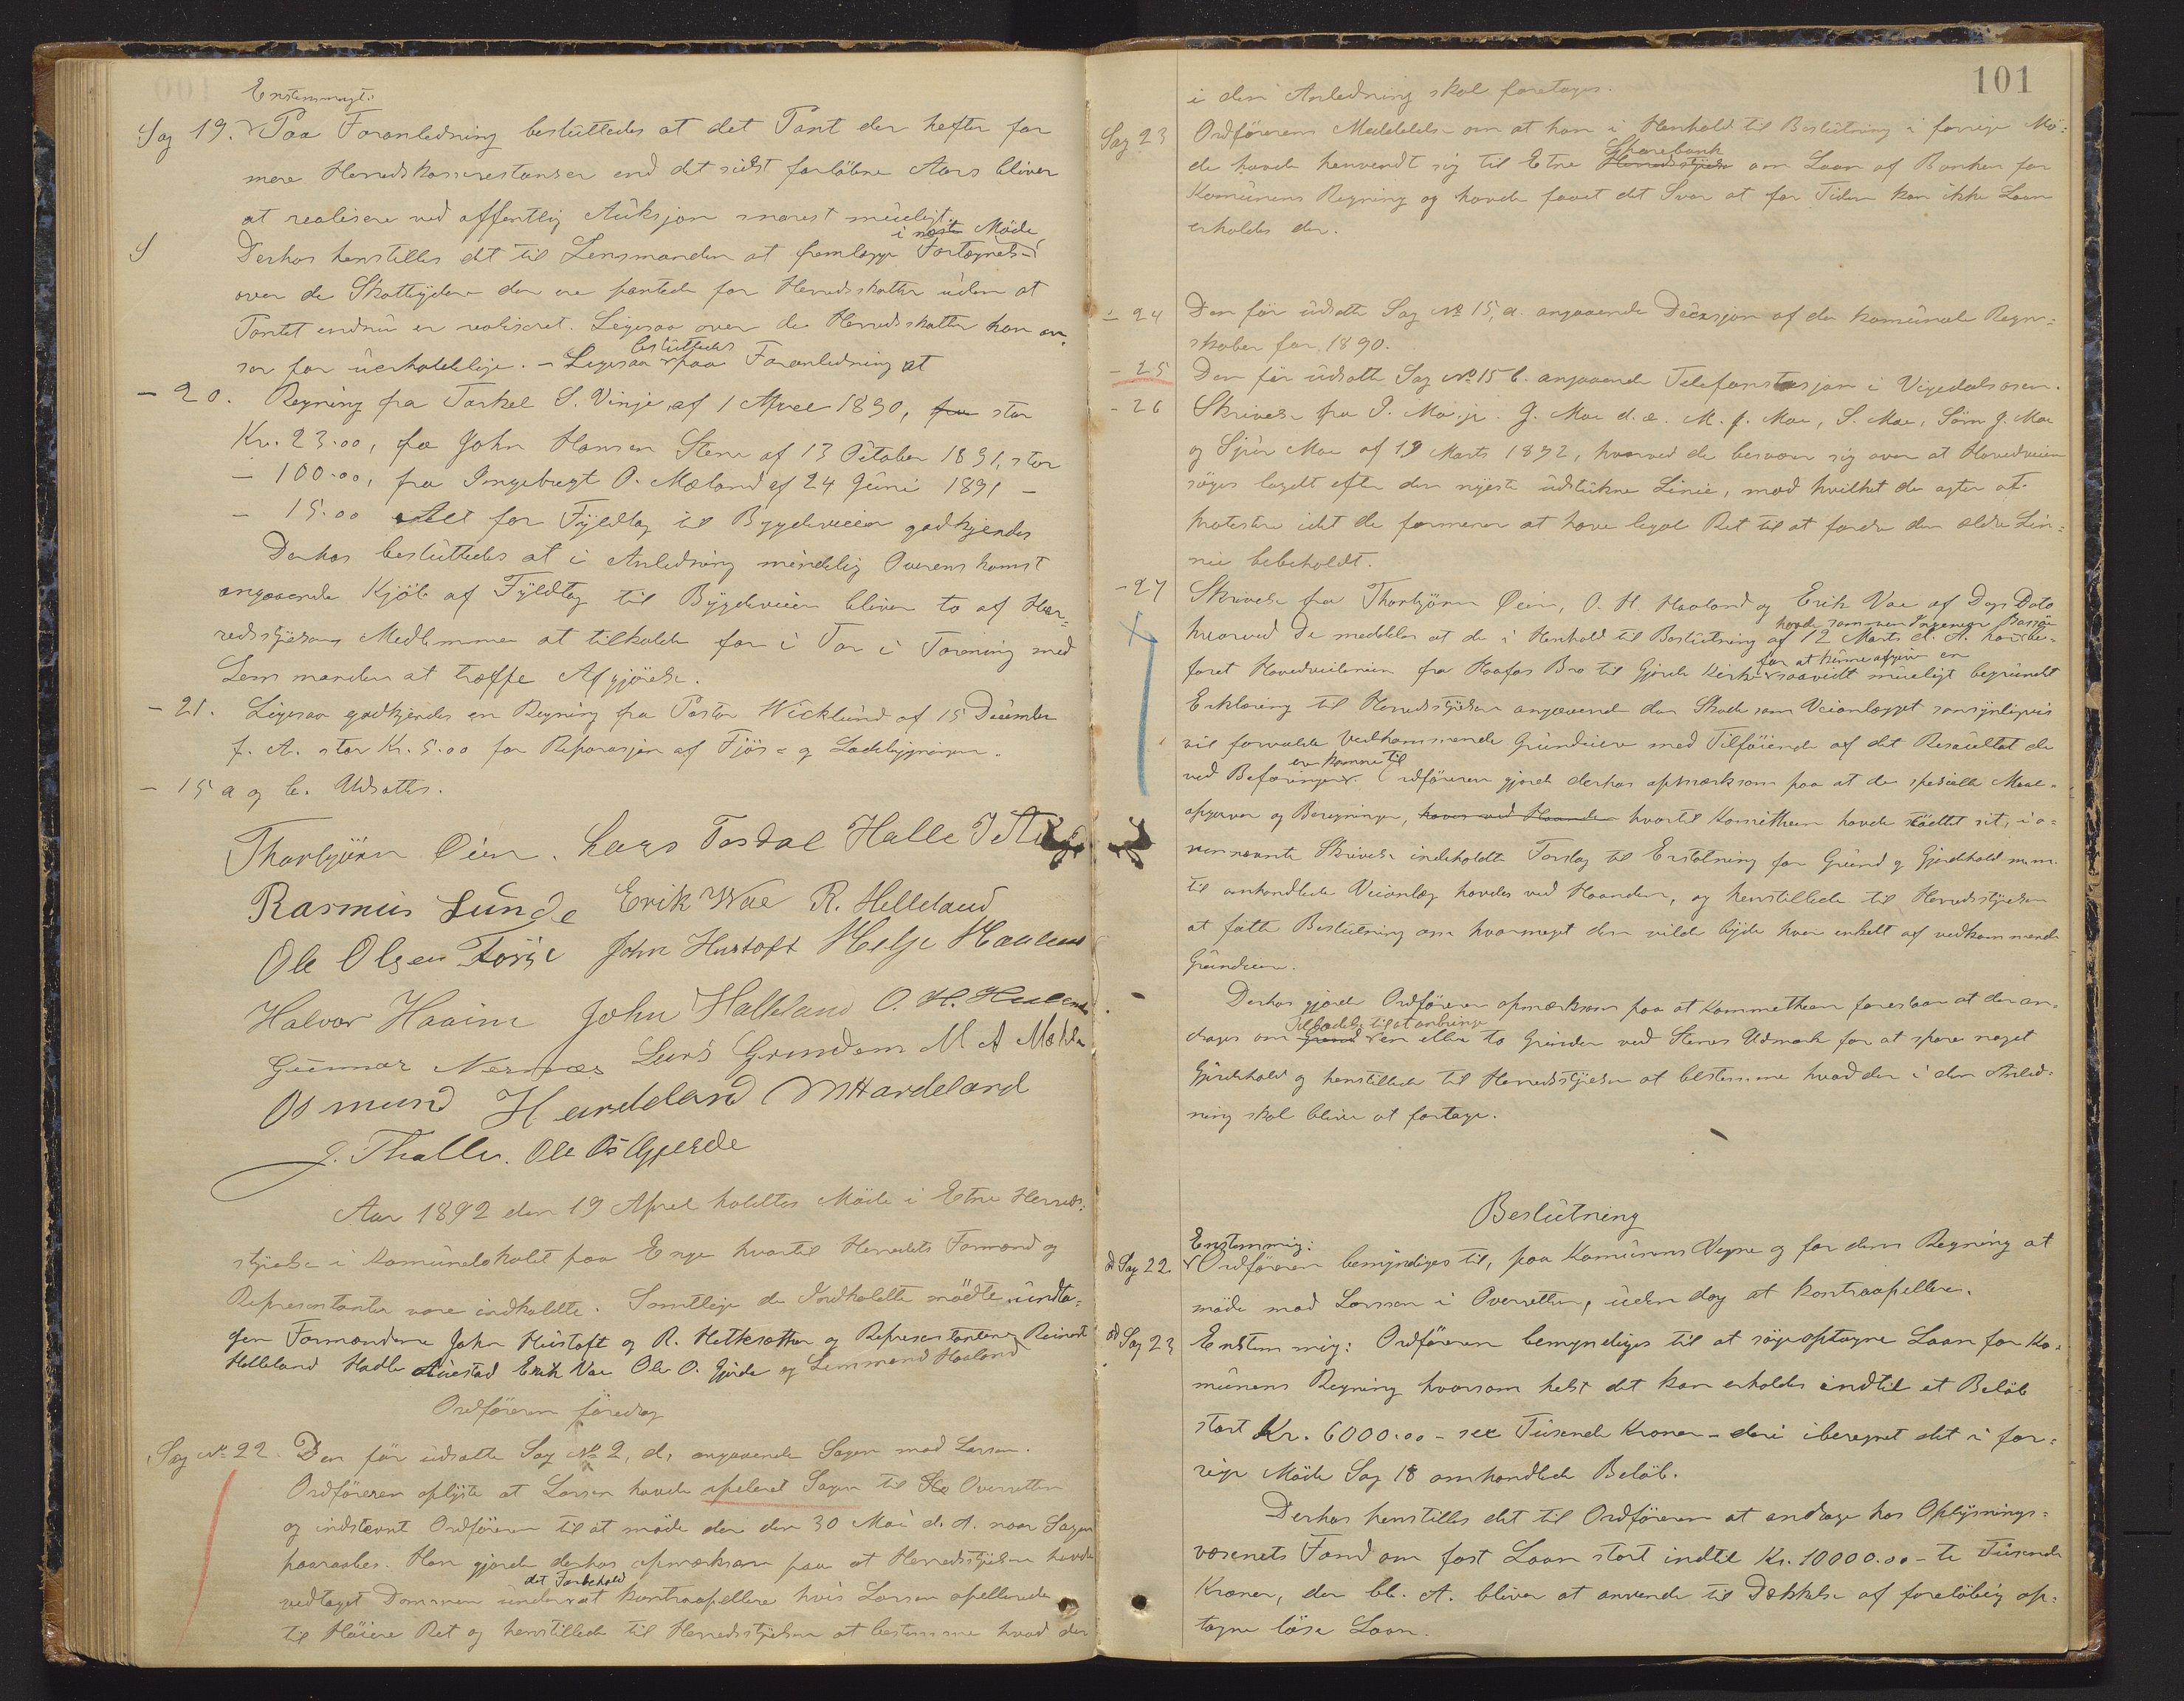 Enstemmigt:
Sag 19. Paa Foranledning besluttedes at det Pant der hefter for
mere Herredskasserestanser end det sidst forløbne Aars bliver
at realisere ved offentlig Auksjon snarest mueligt.
i næste Møde
Derhos henstilles det til Lensmanden at fremlægge Fortegnelse
over de Skatteydere der ere pantede for Herredsskatter uden at
Pantet endnu er realiseret. Ligesaa over de Herredsskatter han an-
besluttedes
ser for uerholdelige. - Ligesaa paa Foranledning at
- 20. Regning fra Torkel S. Vinje, af 1 April 1890, fra stor
Kr. 23.00, fra John Hansen Stene af 13 October 1891, stor
- 100.00, fra Ingebregt O. Mæland af 24 Juni 1891 -
- 15.00 Alt for Fyldtag til Bygdeveien godkjendes
Derhos besluttedes at i Anledning mindelig Overenskomst
angaaende Kjøb af Fyldtag til Bygdeveien bliver to af Her=
redsstyrelsens Medlemmer at tilkalde for i For i Forening med
Lensmanden at træffe Afgjørelse.
- 21. Ligesaa godkjendes en Regning fra Pastor Wicklund af 15 December
f. A. stor Kr. 5.00 for Reparasjon af Fjøs= og Ladebygningen.
- 15 a og b. Udsattes.
Thorbjørn Øien. Lars Tesdal Halle
Rasmus Lunde Erik Wae R. Helleland
Ole Olsen John Hustoft Helje Haaland
Halvor Haaim John Halleland O. H. Haaland
Gunnar Nernæs Lars Grindem M A Mæhle
Osmund Hardeland M Hardeland
J. Thalle. Ole Gjerde
Aar 1892 den 19 April holdtes Møde i Etne Herreds=
styrelse i Komunelokalet paa Enge hvortil Herredets Formænd og
Representanter vare indkaldte. Samtlige de Indkaldte mødte undta=
gen Formændene John Hustoft og R. Hetlesætter og Representanterne Reinert
Helleland Halle Aurstad Erik Vae Ole O. Gjerde og Lensmand Haaland
Ordføreren foredrog
Sag No 22. Den før udsatte Sag No 2, d, angaaende Sagen mod Larsen.
Ordføreren oplyste at Larsen havde apeleret Sagen til Overretten
og indstevnt Ordføreren til at møde der den 30 Mai d. A. naar Sagen
paaraabes. Han gjorde derhos opmærksom paa at Herredsstyrelsen havde
det Forbehold
vedtaget Dommen under at kontraapellere hvis Larsen apellerede
til Høiere Ret og henstillede til Herredsstyrelsen at bestemme hvad der
101
i den Anledning skal foretages.
Sag 23 Ordførerens Meddelelse om at han i Henhold til Beslutning i forrige Mø=
Sparebank
de havde henvendt sig til Etne Herredsstyrelse om Laan af Banken for
Komunens Regning og havde faaet det Svar at for Tiden kan ikke Laan
erholdes der.
- 24 Den før udsatte Sag No 15, a. angaaende Decisjon af de komunale Regn=
skaber for 1890.
- 25 Den før udsatte Sag No 15 b. angaaende Telefonstasjon i Vigedalsosen.
- 26 Skrivelse fra J. Moe jr. G. Moe d. æ. M. J. Moe, S. Moe, Sørn J. Moe
og Sjur Moe af 19 Marts 1892, hvorved de besværer sig over at Hovedveien
søges lagdt efter den nyeste udstukne Linie, mod hvilket de agter at
protestere idet de formener at have legal Ret til at fordre den ældre Lin=
nie bebeholdt.
- 27 Skrivelse fra Thorbjørn Øien, O. H. Haaland og Erik Vae af Dags Dato
havde sammen Ingeniør
hvorved De meddeler at de i Henhold til Beslutning af 12 Marts d. A. har be-
for at kunne afgive en
faret Hovedveilinien fra Haafos Bro til Gjerde Kirke saavidt mueligt begrundet
Erklæring til Herredsstyrelsen angaaende den Skade som Veianlægget sansynligvis
vil forvolde Vedkommende Grundeiere med Tilføiende af det Resultat de
ere komne til
ved Befaringen. Ordføreren gjorde derhos opmærksom paa at de specielle Maal=
opgaver og Beregninger, haves ved Haanden hvortil Komitheen havde støttet sit, i o=
vennævnte Skrivelse indeholdte Forslag til Erstatning for Grund og Gjerdehold m.m.
til omhandlede Veianlæg havdes ved Haanden, og henstillede til Herredsstyrelsen
at fatte Beslutning om hvormeget den vilde byde hver enkelt af vedkommende
Grundeiere.
Derhos gjorde Ordføreren opmærksom paa at Kommitheen foreslaar at der an=
Tilladelse til at anbringe
drages om Grund en eller to Grinder ved Stenes Udmark for at spare noget
Gjerdehold og henstillede til Herredsstyrelsen at bestemme hvad der i den Anled=
ning skal blive at foretage.
Beslutning
Enstemmig:
ad Sag 22 Ordføreren bemyndiges til, paa Komunens Vegne og for dens Regning at
møde mod Larsen i Overretten, uden dog at kontraapellere.
ad Sag 23 Enstemmig: Ordføreren bemyndiges til at søge optagne Laan for Ko=
munens Regning hvorsom helst det kan erholdes indtil et Beløb
stort Kr. 6000.00 - sex Tusende Kroner - deri iberegnet det i for=
rige Møde Sag 18 omhandlede Beløb.
Derhos henstilles det til Ordføreren at andrage hos Oplysnings=
væsenets Fond om fast Laan stort indtil Kr. 10000.00 - ti Tusende
Kroner, der bl. A. bliver at anvende til Dækkelse af foreløbig op=
tagne løse Laan.